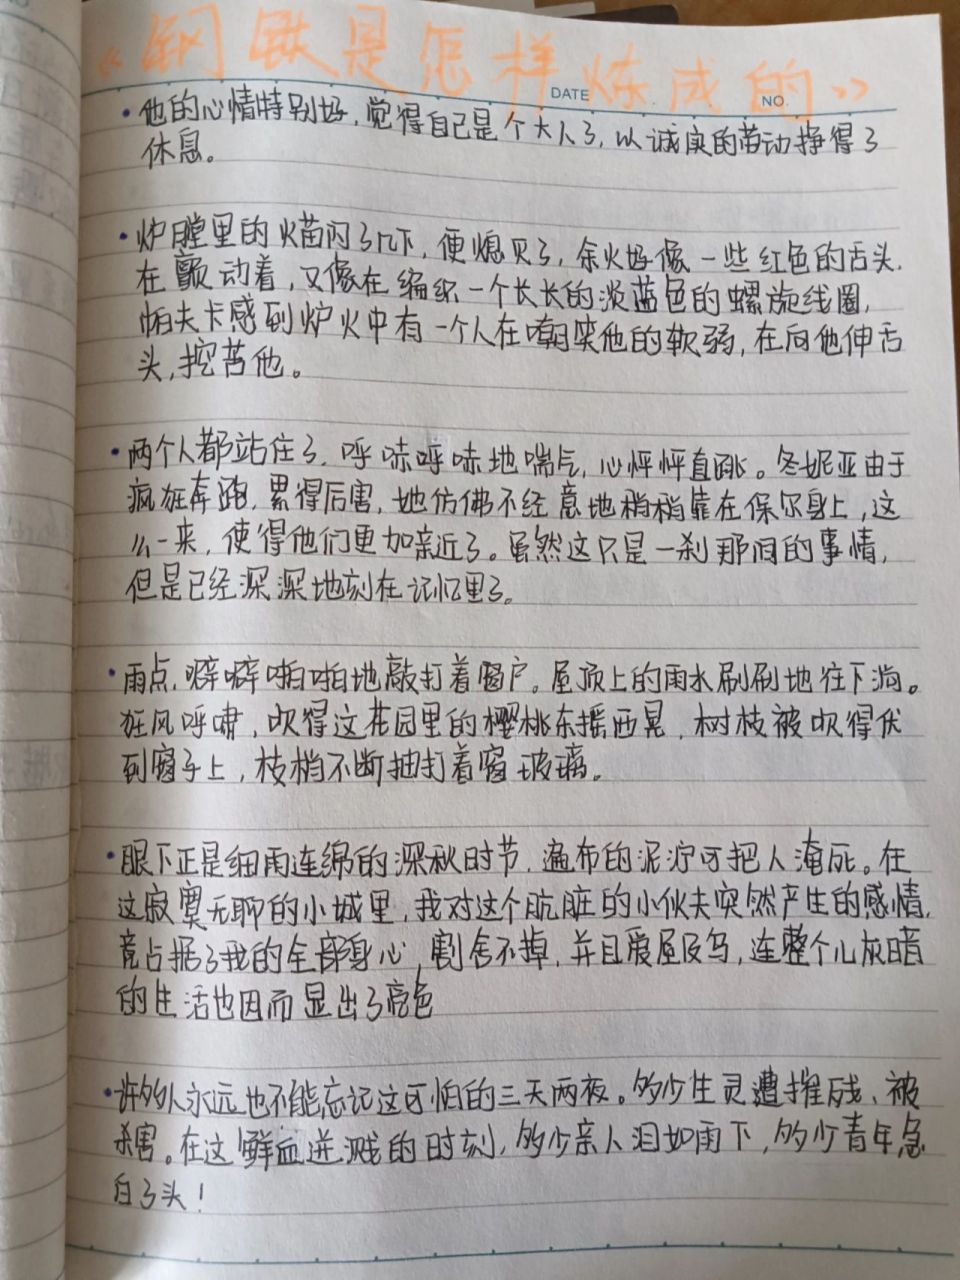 《钢铁是怎样炼成的》
DATE
NO.
•他的心情特别好，觉得自己是个大人了，以诚实的劳动挣得了
休息。
•炉膛里的火苗闪了几下，便熄灭了，余火好像一些红色的舌头，
在颤动着，又像在编织一个长长的淡蓝色的螺旋线圈，
帕夫卡感到炉火中有一个人在嘲笑他的软弱，在向他伸舌
头，挖苦他。
•两个人都站住了，呼哧呼哧地喘气，心怦怦直跳。冬妮亚由于
疯狂奔跑，累得厉害，她仿佛不经意地稍稍靠在保尔身上，这
么一来，使得他们更加亲近了。虽然这只是一刹那间的事情，
但是已经深深地刻在记忆里了。
•雨点，噼噼啪啪地敲打着窗户。屋顶上的雨水刷刷地往下淌。
狂风呼啸，吹得这花园里的樱桃东摇西晃，树枝被吹得伏
到窗子上，枝梢不断抽打着窗玻璃。
•眼下正是细雨连绵的深秋时节，遍布的泥泞可把人淹死。在
这寂寞无聊的小城里，我对这个肮脏的小伙夫突然产生的感情，
竟占据了我的全部身心，割舍不掉，并且爱屋及乌，连整个儿灰暗
的生活也因而显出了亮色
•许多人永远也不能忘记这可怕的三天两夜。多少生灵遭摧残、被
杀害。在这鲜血迸溅的时刻，多少亲人泪如雨下，多少青年急
白了头！